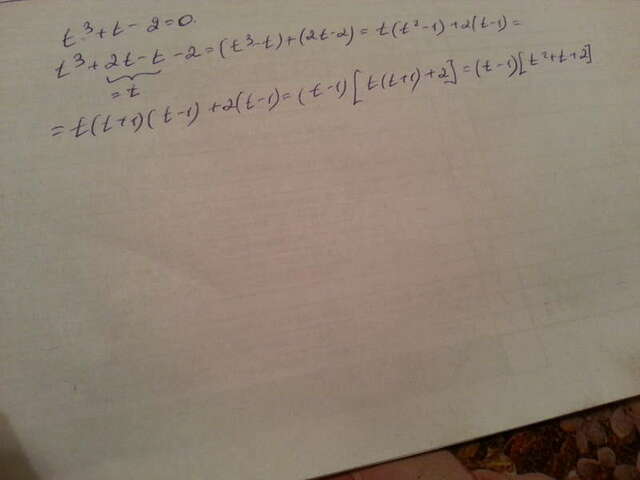 t³+t-2=0.
t³+2t-t-2=(t³-t)+(2t-2)=t(t²-1)+2(t-1)=
=t
=t(t+1)(t-1)+2(t-1)=(t-1)[t(t+1)+2]=(t-1)[t²+t+2]